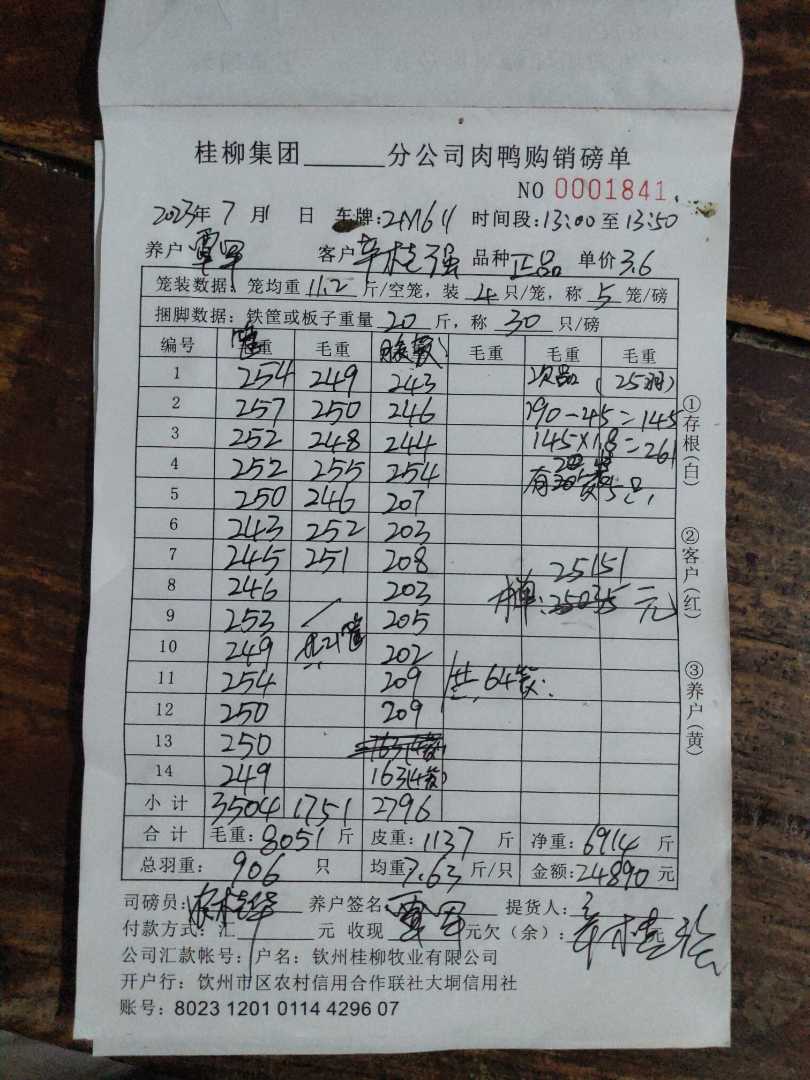 桂柳集团______分公司肉鸭购销磅单
NO 0001841
2023年 7 月 1 日 车牌: 时间段:13:00 至 13:50
养户 覃军 客户 辛桂强 品种 正品 单价 3.6
笼装数据: 笼均重 11.2 斤/空笼，装 4 只/笼，称 5 笼/磅
捆脚数据: 铁筐或板子重量 20 斤，称 30 只/磅
编号 重 毛重 毛重 毛重 毛重
1 254 249 243 次品(25羽)
2 257 250 246 190-45=145
3 252 248 244 145×1.8=261
4 252 255 254 有 5只
5 250 246 207
6 243 252 203
7 245 251 208 25151
8 246 203 元
9 253 205
10 249 共21笼 202
11 254 209 共64
12 250 209
13 250
14 249 163(4
小计 3504 1751 2796
合计 毛重:8051 斤 皮重:1137 斤 净重:6914 斤
总羽重: 906 只 均重 7.63 斤/只 金额:24890 元
司磅员: 养户签名 覃军 提货人:
付款方式:汇______元 收现 元欠(余): 元
公司汇款帐号:户名: 钦州桂柳牧业有限公司
开户行: 饮州市区农村信用合作联社大垌信用社
账号: 8023 1201 0114 4296 07
①存根(白)
②客户(红)
③养户(黄)